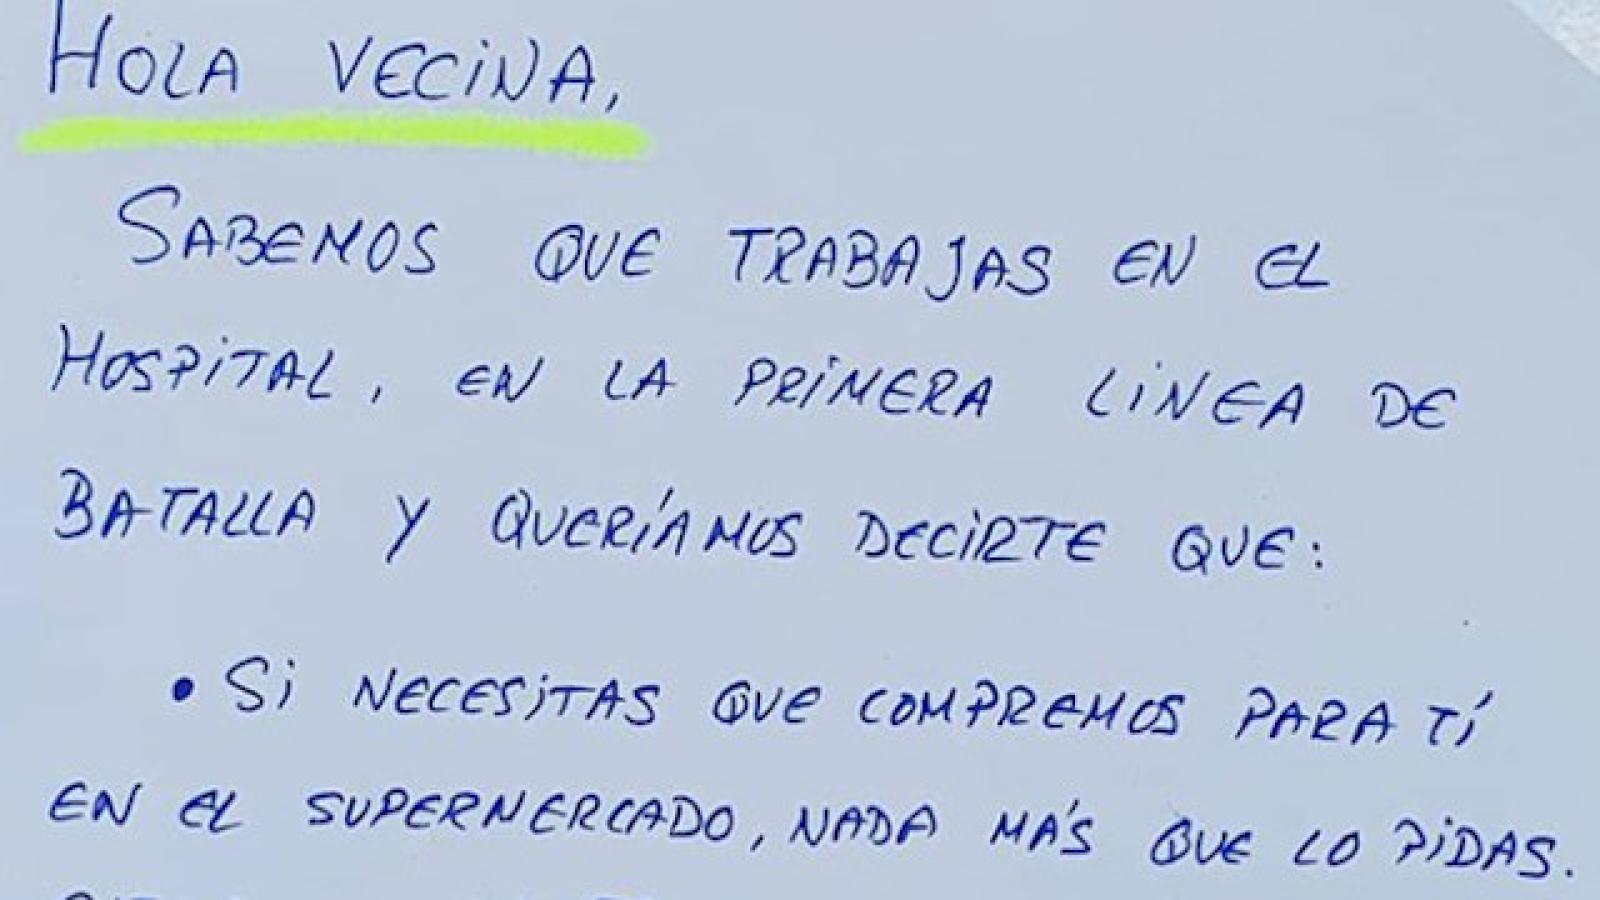 HOLA VECINA,
SABEMOS QUE TRABAJAS EN EL
HOSPITAL, EN LA PRIMERA LINEA DE
BATALLA Y QUERÍAMOS DECIRTE QUE:
• Si NECESITAS QUE COMPREMOS PARA TÍ
EN EL SUPERMERCADO, NADA MÁS QUE LO PIDAS.